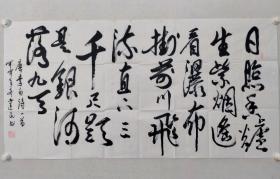 日照香爐
生紫烟遥
看瀑布
掛前川飛
流直下三
千尺疑
是銀河
落九天
唐李白詩一首